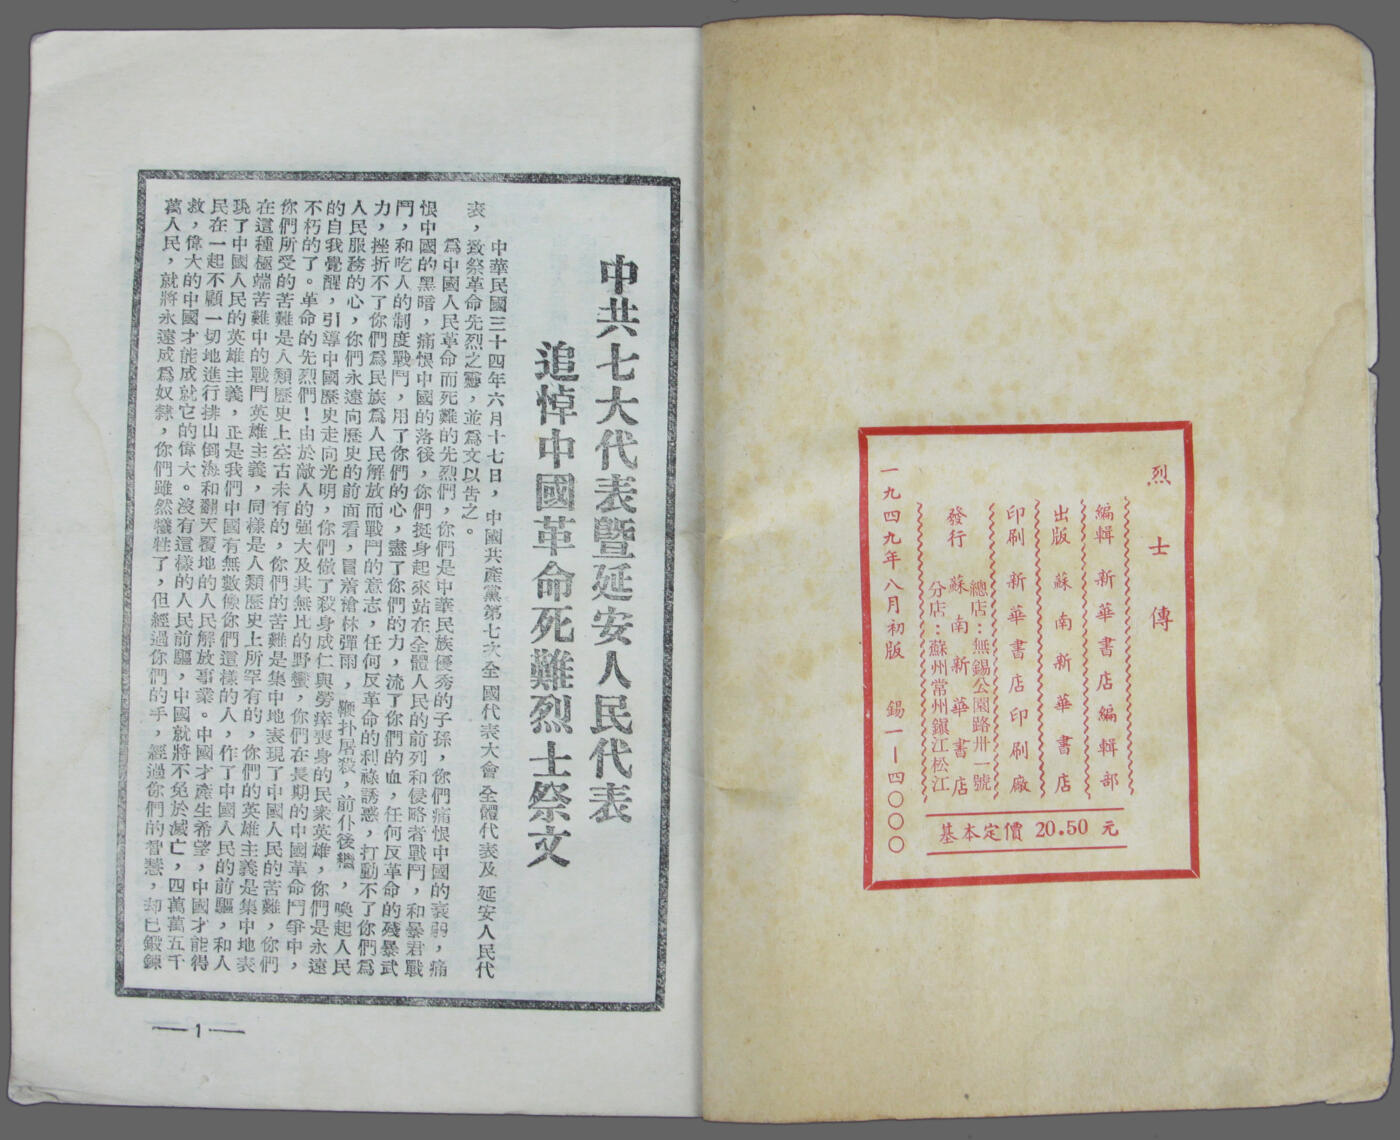 烈士傳
編輯 新華書店編輯部
出版 蘇南新華書店
印刷 新華書店印刷廠
總店：無錫公園路卅一號
發行 蘇南新華書店
分店：蘇州常州鎭江松江
一九四九年八月初版 錫一—四〇〇〇
基本定價 20.50 元
中共七大代表暨延安人民代表
追悼中國革命死難烈士祭文
中華民國三十四年六月十七日，中國共產黨第七次全國代表大會全體代表及延安人民代
表，致祭革命先烈之靈，並爲文以告之。
爲中國人民革命而死難的先烈們，你們是中華民族優秀的子孫，你們痛恨中國的衰弱，痛
恨中國的黑暗，痛恨中國的落後，你們挺身起來站在全體人民的前列和侵略者戰鬥，和暴君戰
鬥，和吃人的制度戰鬥，用了你們的心，盡了你們的力，流了你們的血，任何反革命的殘暴武
力，挫折不了你們爲民族爲人民解放而戰鬥的意志，任何反革命的利祿誘惑，打動不了你們爲
人民服務的心，你們永遠向歷史的前面看，冒着槍林彈雨，鞭扑居殺，前仆後繼，喚起人民
的自我覺醒，引導中國歷史走向光明，你們做了殺身成仁與勞瘁喪身的民衆英雄，你們是永遠
不朽的了。革命的先烈們！由於敵人的強大及其無比的野蠻，你們在長期的中國革命鬥爭中，
你們所受的苦難是人類歷史上空古未有的，你們的苦難是集中地表現了中國人民的苦難，你們
在這種極端苦難中的戰鬥英雄主義，同樣是人類歷史上所罕有的，你們的英雄主義是集中地表
現了中國人民的英雄主義，正是我們中國有無數像你們這樣的人，作了中國人民的前驅，和人
民在一起不顧一切地進行排山倒海和翻天覆地的人民解放事業。中國才產生希望，中國才能得
救，偉大的中國才能成就它的偉大。沒有這樣的人民前驅，中國就將不免於滅亡，四萬萬五千
萬人民，就將永遠成爲奴隸，你們雖然犧牲了，但經過你們的手，經過你們的智慧，却已鍛鍊
— 1 —